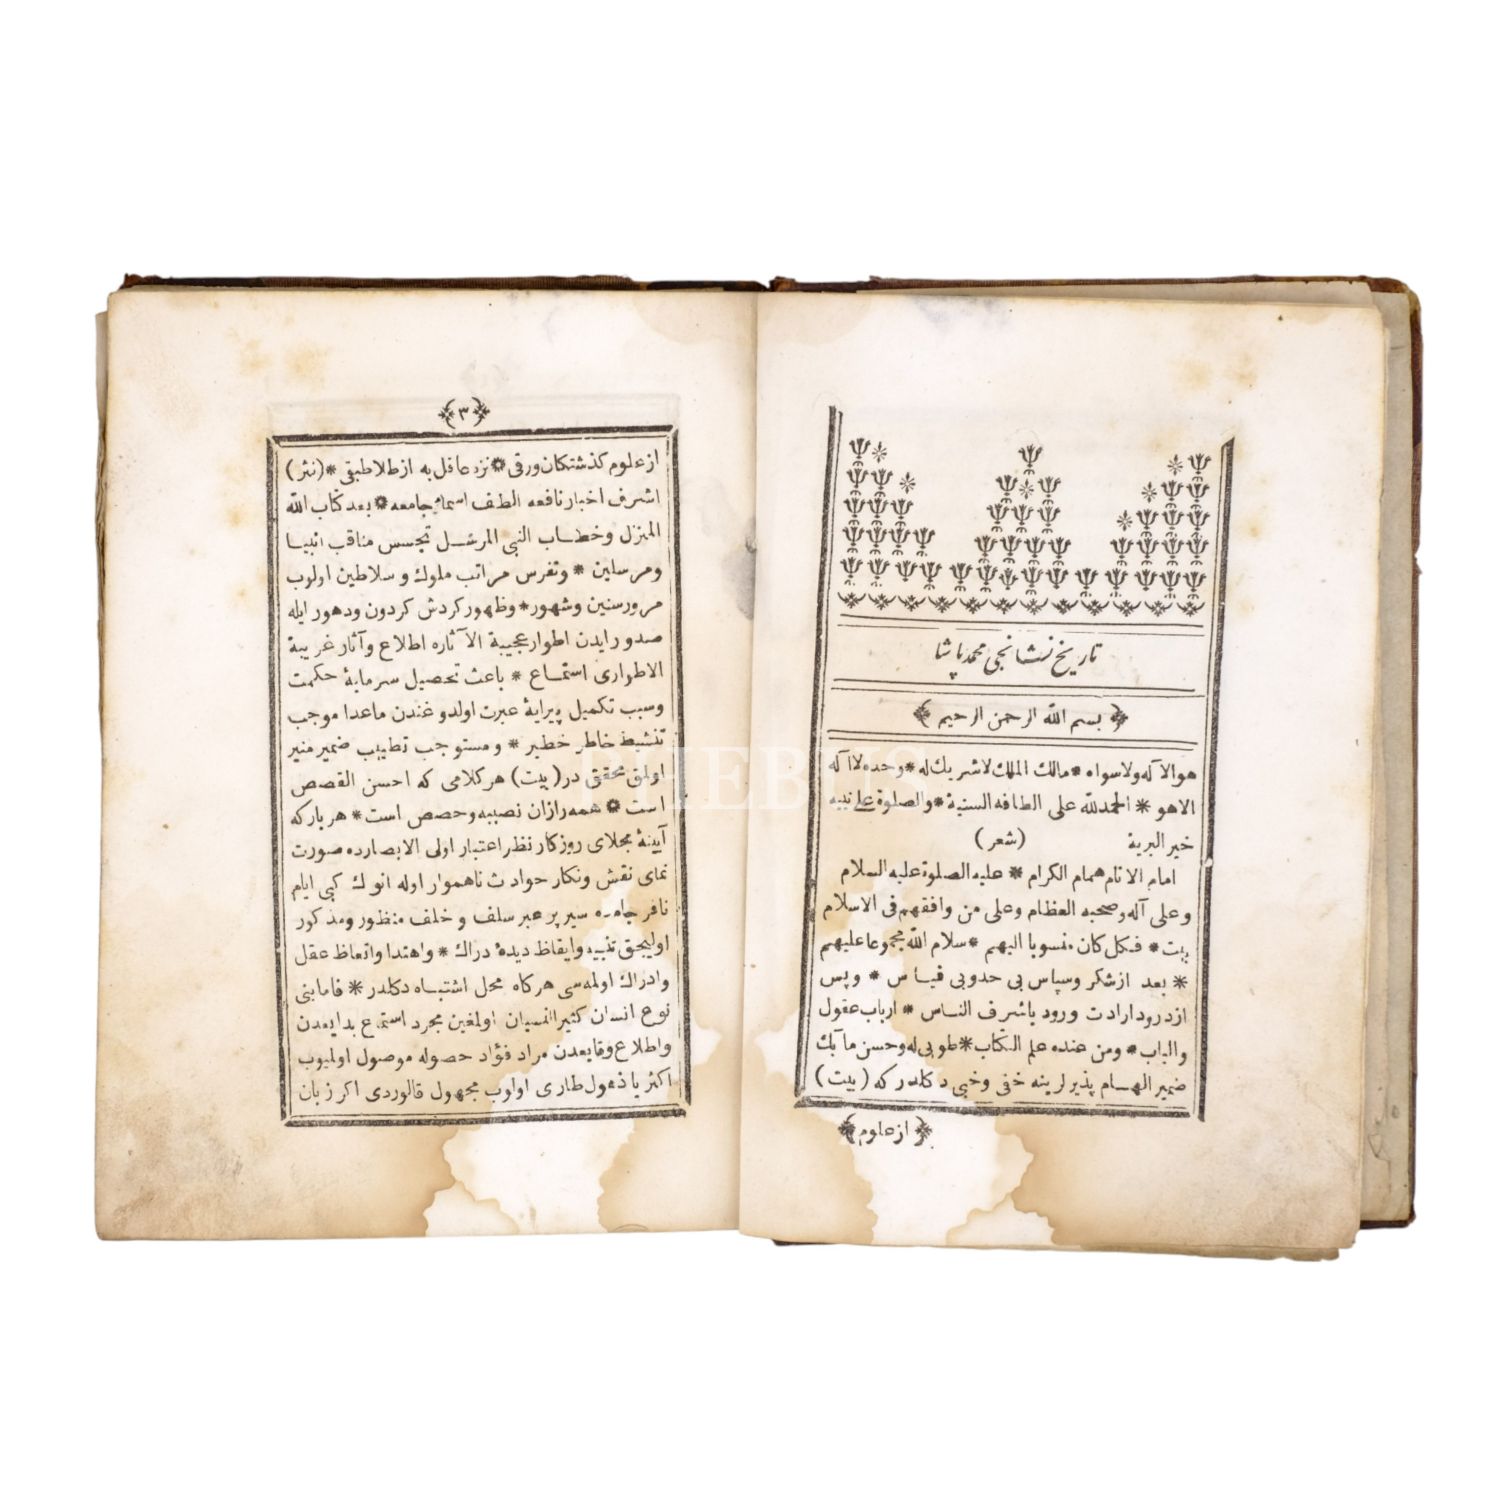 تاريخ نشانجى محمد پاشا
بسم الله الرحمن الرحيم
هو الاآله ولا سواه * مالك الملك لا شريك له * وحده لا اآله
الا هو * الحمد لله على الطافه السنية * والصلوة على نبيه
خير البرية (شعر)
امام الانام همام الكرام * عليه الصلوة عليه السلام
وعلى آله وصحبه العظام وعلى من وافقهم فى الاسلام
بيت * فكل كان منسوبا اليهم * سلام الله مجموعا عليهم
* بعد از شكر وسپاس بى حدوبى قياس * وپس
از درود ارادت ورود باشرف الناس * ارباب عقول
والباب * ومن عنده علم الكتاب * طوبى له وحسن مآبك
ضمير الهام پذير لرينه خفى وخبى دكلدر كه (بيت)
از علوم
٣
از علوم كذشتكان ورقى * نزد عاقل به از طلا طبقى * (نثر)
اشرف اخبار نافعه الطف اسماى جامعه * بعد كتاب الله
المنزل وخطاب النبى المرسل تجسس مناقب انبيا
ومرسلين * وتفرس مراتب ملوك وسلاطين اولوب
مرور سنين وشهور * وظهور كردش كردون ودهور ايله
صدور ايدن اطوار عجيبة الآثاره اطلاع وآثار غريبة
الاطوارى استماع * باعث تحصيل سرماية حكمت
وسبب تكميل پيراية عبرت اولدوغندن ماعدا موجب
تنشيط خاطر خطير * ومستوجب تطييب ضمير منير
اولمق محققدر (بيت) هر كلامى كه احسن القصص
است * همه رازان نصيبه وحصص است * هر بار كه
آيينة مجلاى روزكار نظر اعتبار اولى الابصارده صورت
نماى نقش ونكار حوادث ناهموار اوله انوك كبى ايام
نافرجامده سير پر عبر سلف وخلف منظور ومذكور
اوليجق تنبيه وايقاظ ديدة دراك * واهتدا واتعاظ عقل
وادراك اولمه سى هركاه محل اشتباه دكلدر * فاما بنى
نوع انسان كثير النسيان اولمغين مجرد استماع بدايعدن
واطلاع وقايعدن مراد فؤاد حصوله موصول اوليوب
اكثريا ذهول طارى اولوب مجهول قالوردى اكر زبان